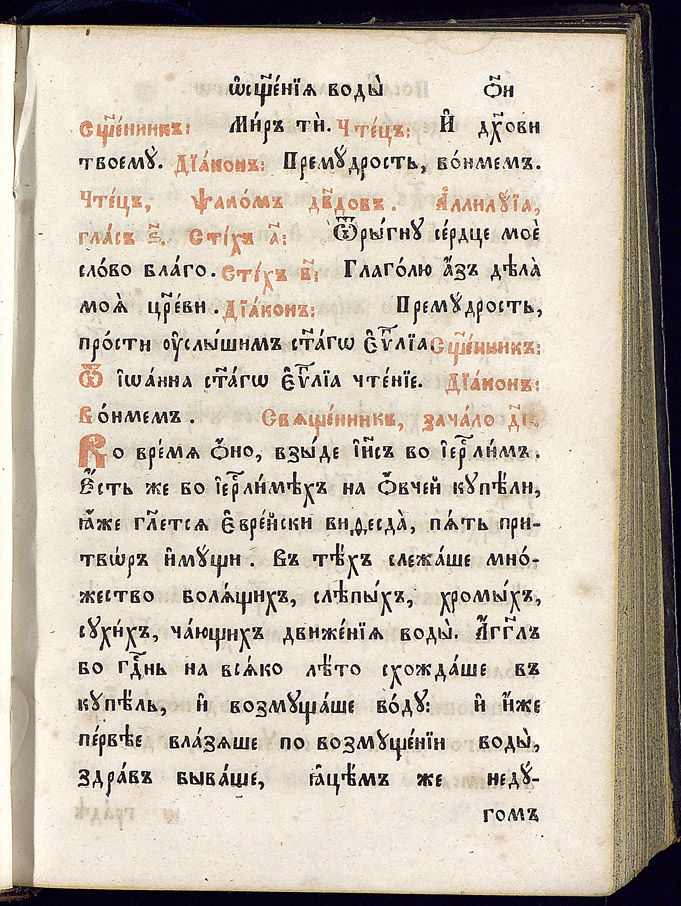 ѡ҆сщ҃е́нїѧ воды̀ ѻ҃и
Сщ҃е́нникъ: Ми́ръ тѝ. Чте́цъ: И҆ дх҃ови
твоемꙋ̀. Дїа́конъ: Премꙋ́дрость, во́нмемъ.
Чте́цъ, ѱало́мъ дв҃довъ. А҆ллилꙋ́їа,
гла́съ Сти́хъ а҃: Ѿры́гнꙋ се́рдце моѐ
сло́во бла́го. Сти́хъ в҃: Глаго́лю а҆́зъ дѣла̀
моѧ̀ цр҃е́ви. Дїа́конъ: Премꙋ́дрость,
про́сти оу҆слы́шимъ ст҃а́гѡ є҆ѵⷢ҇лїа Сщ҃е́нникъ:
Ѿ і҆ѡа́нна ст҃а́гѡ є҆ѵⷢ҇лїа чте́нїе. Дїа́конъ:
Во́нмемъ. Свѧще́нникъ, зача́ло д҃і.
Во вре́мѧ ѻ҆́но, взы́де і҆и҃съ во і҆ерⷭ҇ли́мъ.
Е҆́сть же во і҆ерⷭ҇ли́мѣхъ на ѻ҆́вчей кꙋпѣ́ли,
ꙗ҆́же гл҃етсѧ є҆вре́йски виѳесда̀, пѧ́ть при-
твѡ́ръ и҆мꙋ́щи. Въ тѣ́хъ слежа́ше мно́-
жество болѧ́щихъ, слѣпы́хъ, хромы́хъ,
сꙋхи́хъ, ча́ющихъ движе́нїѧ воды̀. А҆́гг҃лъ
бо гдⷭ҇нь на всѧ́ко лѣ́то схожда́ше въ
кꙋпѣ́ль, и҆ возмꙋща́ше во́дꙋ: и҆ и҆́же
пе́рвѣе вла́зѧше по возмꙋще́нїи воды̀,
здра́въ быва́ше, ꙗ҆цѣ́мъ же недꙋ́-
гомъ